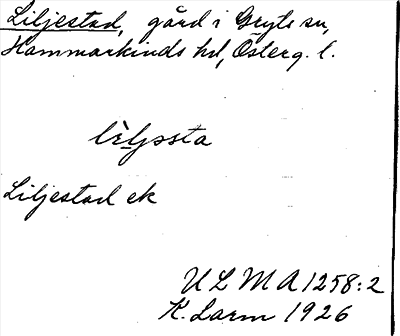 Liljestad, gård i Gryts sn,
Hammarkinds hd, Österg. l.
lèljssta
Liljestad ek
ULMA 1258:2
K. Larm 1926